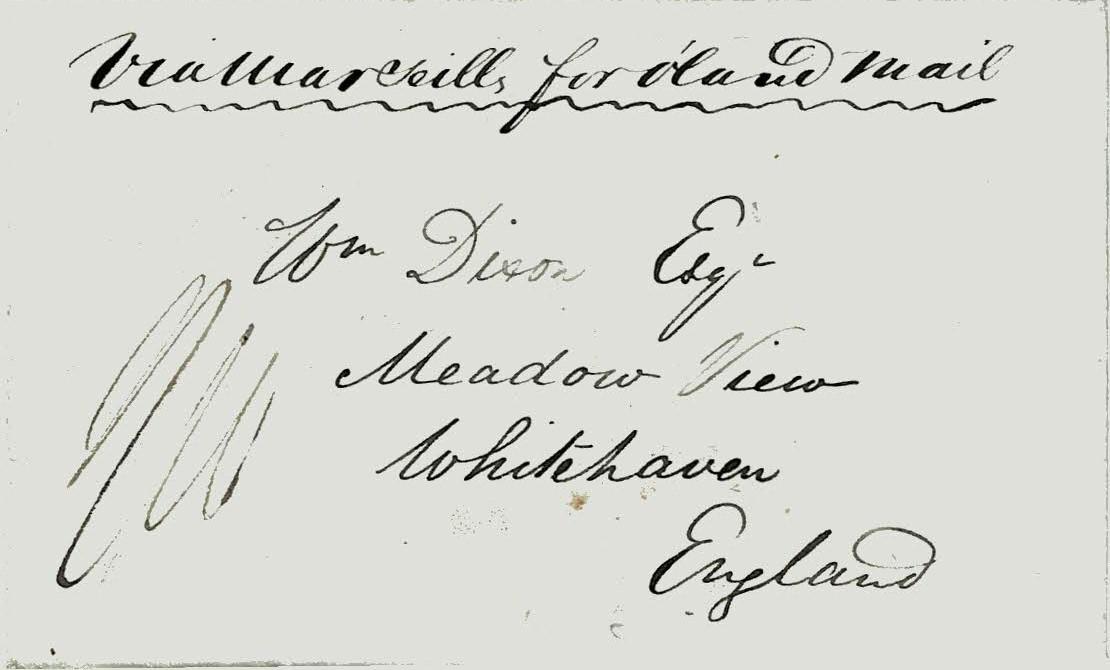 Via Marseills for o'land Mail
Wm Dixon Esqr
Meadow View
Whitehaven
England